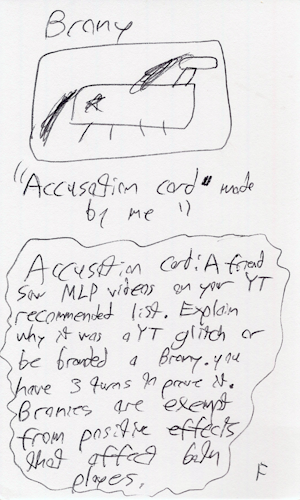 Brony
"Accusation card" made
by me "
Accusation card: A friend
saw MLP videos on your YT
recommended list. Explain
why it was a YT glitch or
be branded a Brony. you
have 3 turns to prove it.
Bronies are exempt
from positive effects
that affect both
players.
F